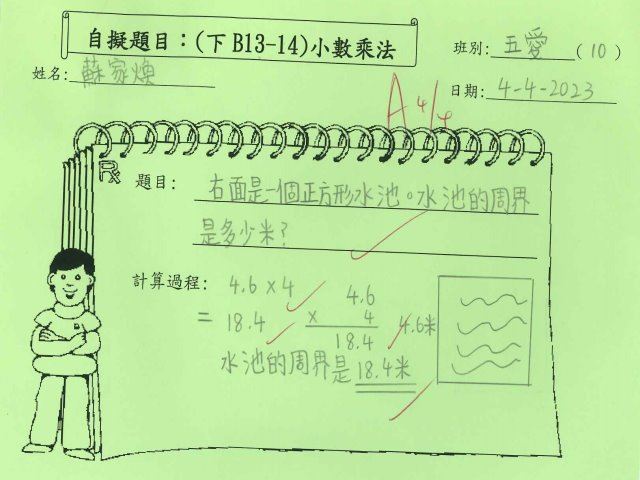 自擬題目：(下 B13-14)小數乘法
班別: 五愛 (10)
姓名: 蘇家煥
日期: 4-4-2023
A 4/4
題目: 右面是一個正方形水池。水池的周界
是多少米?
計算過程: 4.6 × 4
= 18.4
4.6
× 4
18.4
4.6米
水池的周界是 18.4米